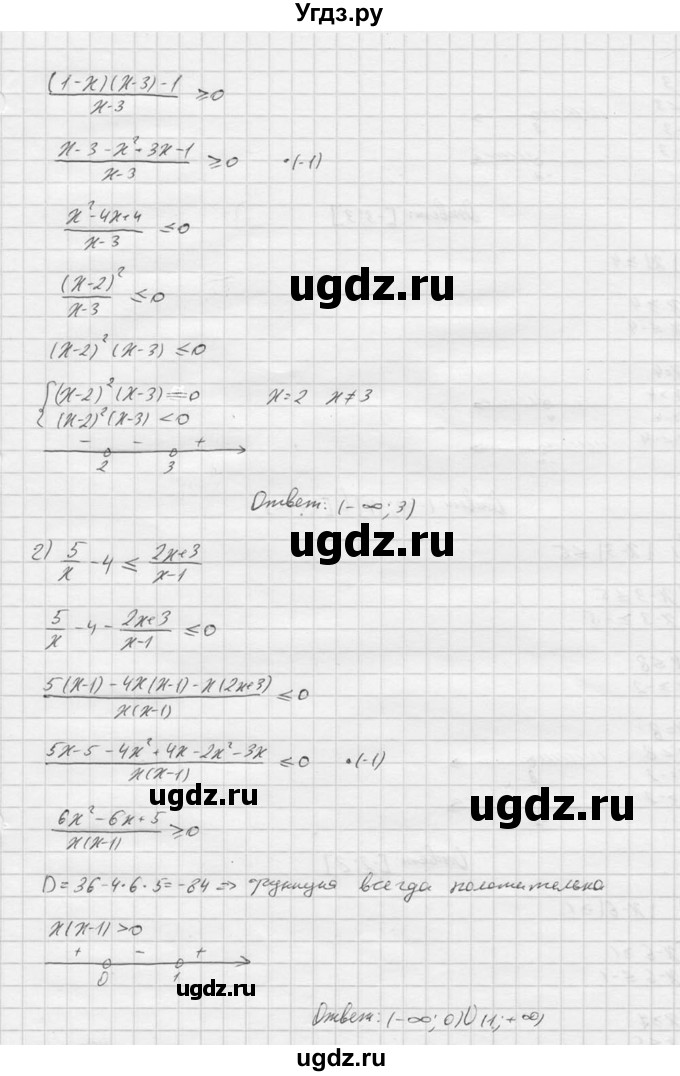 Угдз.ру
((1-x)(x-3)-1)/(x-3) ≥ 0
(x-3-x²+3x-1)/(x-3) ≥ 0 •(-1)
(x²-4x+4)/(x-3) ≤ 0
(x-2)²/(x-3) ≤ 0
ugdz.ru
(x-2)²(x-3) ≤ 0
{(x-2)²(x-3) = 0 x=2 x≠3
(x-2)²(x-3) < 0
- - +
2 3
Ответ: (-∞; 3)
г) 5/x - 4 ≤ (2x+3)/(x-1)
ugdz.ru
5/x - 4 - (2x+3)/(x-1) ≤ 0
(5(x-1) - 4x(x-1) - x(2x+3))/(x(x-1)) ≤ 0
(5x-5-4x²+4x-2x²-3x)/(x(x-1)) ≤ 0 •(-1)
ugdz.ru
ugdz.ru
(6x²-6x+5)/(x(x-1)) ≥ 0
D=36-4·6·5=-84 => функция всегда положительна
x(x-1) > 0
+ - +
0 1
ugdz.ru
Ответ: (-∞; 0)∪(1; +∞)
ugdz.ru